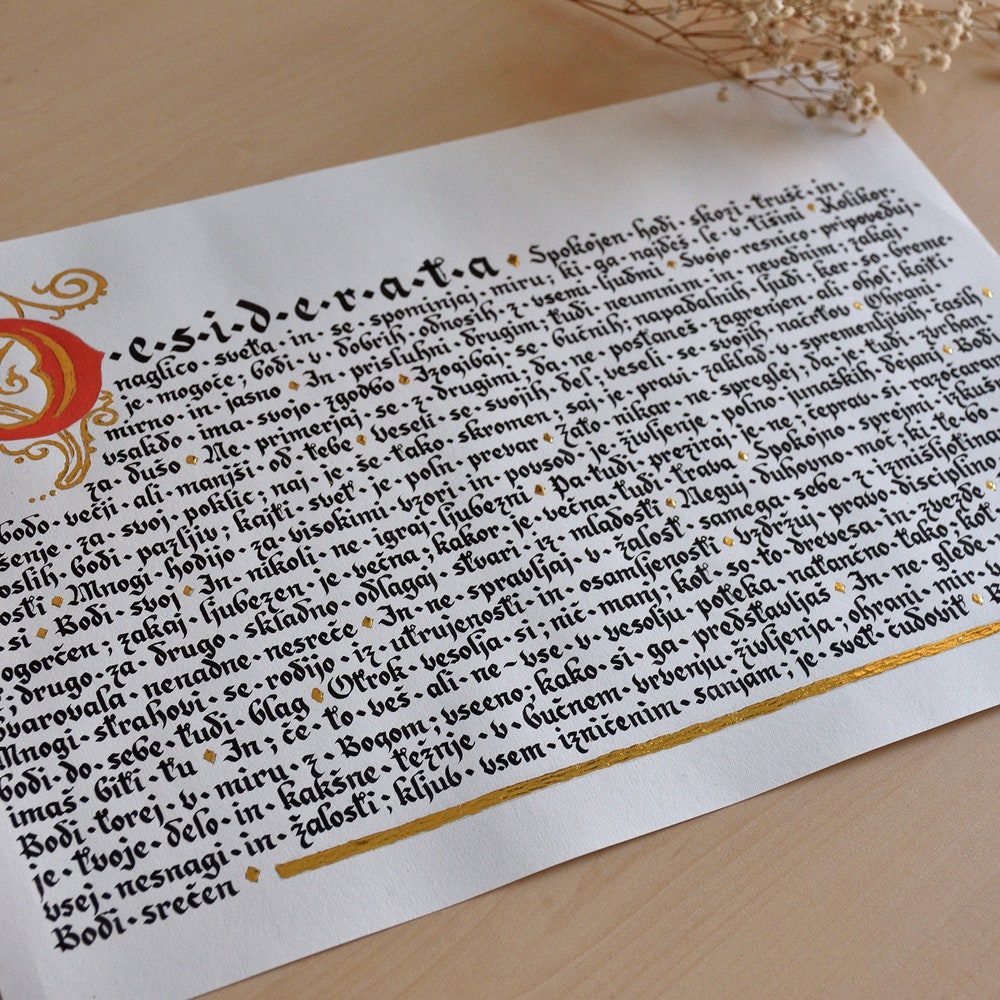 D·e·s·i·d·e·r·a·t·a ◆ Spokojen·hodi·skozi·trušč·in·
naglico·sveta·in·se·spominjaj·miru;·ki·ga·najdeš·le·v·tišini ◆ Kolikor·
je·mogoče;·bodi·v·dobrih·odnosih·z·vsemi·ljudmi ◆ Svojo·resnico·pripoveduj·
mirno·in·jasno ◆ In·prisluhni·drugim;·tudi·neumnim·in·nevednim;·zakaj·
vsakdo·ima·svojo·zgodbo ◆ Izogibaj·se·bučnih;·napadalnih·ljudi·ker·so·breme·
za·dušo ◆ Ne·primerjaj·se·z·drugimi;·da·ne·postaneš·zagrenjen·ali·ohol·kajti·
bodo·večji·ali·manjši·od·tebe ◆ Veseli·se·svojih·del;·veseli·se·svojih·načrtov ◆ Ohrani·
šenje·za·svoj·poklic;·naj·je·še·tako·skromen;·saj·je·pravi·zaklad·v·spremenljivih·časih ◆
oslih·bodi·pazljiv·kajti·svet·je·poln·prevar ◆ Zato·nikar·ne·spreglej;·da·je·tudi·zvrhan·
osti ◆ Mnogi·hodijo·za·visokimi·vzori·in·povsod·je·življenje·polno·junaških·dejanj ◆ Bodi
si ◆ Bodi·svoj ◆ In·nikoli·ne·igraj·ljubezni ◆ Pa·tudi·preziraj·je·ne;·čeprav·si·razočara
ogorčen;·zakaj·ljubezen·je·večna;·kakor·je·večna·tudi·trava ◆ Spokojno·sprejmi·izkuš
;·drugo·za·drugo·skladno·odlagaj·stvari·iz·mladosti ◆ Neguj·duhovno·moč;·ki·te·bo
varovala·nenadne·nesreče ◆ In·ne·spravljaj·v·žalost·samega·sebe·z·izmišljotina
Mnogi·strahovi·se·rodijo·iz·utrujenosti·in·osamljenosti ◆ Vzdržuj·pravo·disciplino
bodi·do·sebe·tudi·blag ◆ Otrok·vesolja·si·nič·manj;·kot·so·to·drevesa·in·zvezde ◆
imaš·biti·tu ◆ In;·če·to·veš·ali·ne-vse·v·vesolju·poteka·natančno·tako·kot·
Bodi·torej·v·miru·z·Bogom;·vseeno;·kako·si·ga·predstavljaš ◆ In·ne·glede·
je·tvoje·delo·in·kakšne·težnje·v·bučnem·vrvenju·življenja,·ohrani·mir·v·
vsej·nesnagi·in·žalosti;·kljub·vsem·izničenim·sanjam;·je·svet·čudovit ◆
Bodi·srečen ◆